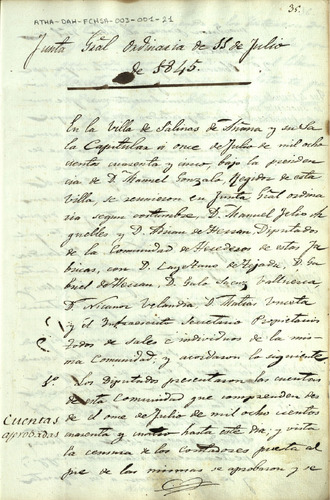 ATHA-DAH-FCHSA-003-001-21
35.
Junta Gral ordinaria de 11 de Julio
de 1845.
En la Villa de Salinas de Añana y su Sa
la Capitular a once de Julio de mil ocho
cientos cuarenta y cinco, bajo la presiden
cia de D. Manuel Gonzalo Regidor de esta
Villa, se reunieron en Junta Gral ordina
ria segun costumbre, D. Manuel Felix de
y D. Brun de Herran Diputados
de la Comunidad de Herederos de estas fa
bricas, con D. Cayetano de Tejada, D. Ga
briel de Herran, D. Galo Saenz Valluerca
D. Nicanor Velandia, D. Matias Urrosta
y el Infraescrito Secretario Propietarios
todos de Sales e individuos de la mis
ma Comunidad, y acordaron lo siguiente.
1º. Los Diputados presentaron las cuentas
Cuentas
aprobadas
de esta Comunidad que comprenden des
de el once de Julio de mil ocho cientos
cuarenta y cuatro hasta este dia; y vista
la censura de los contadores puesta al
pie de las mismas se aprobaron y se